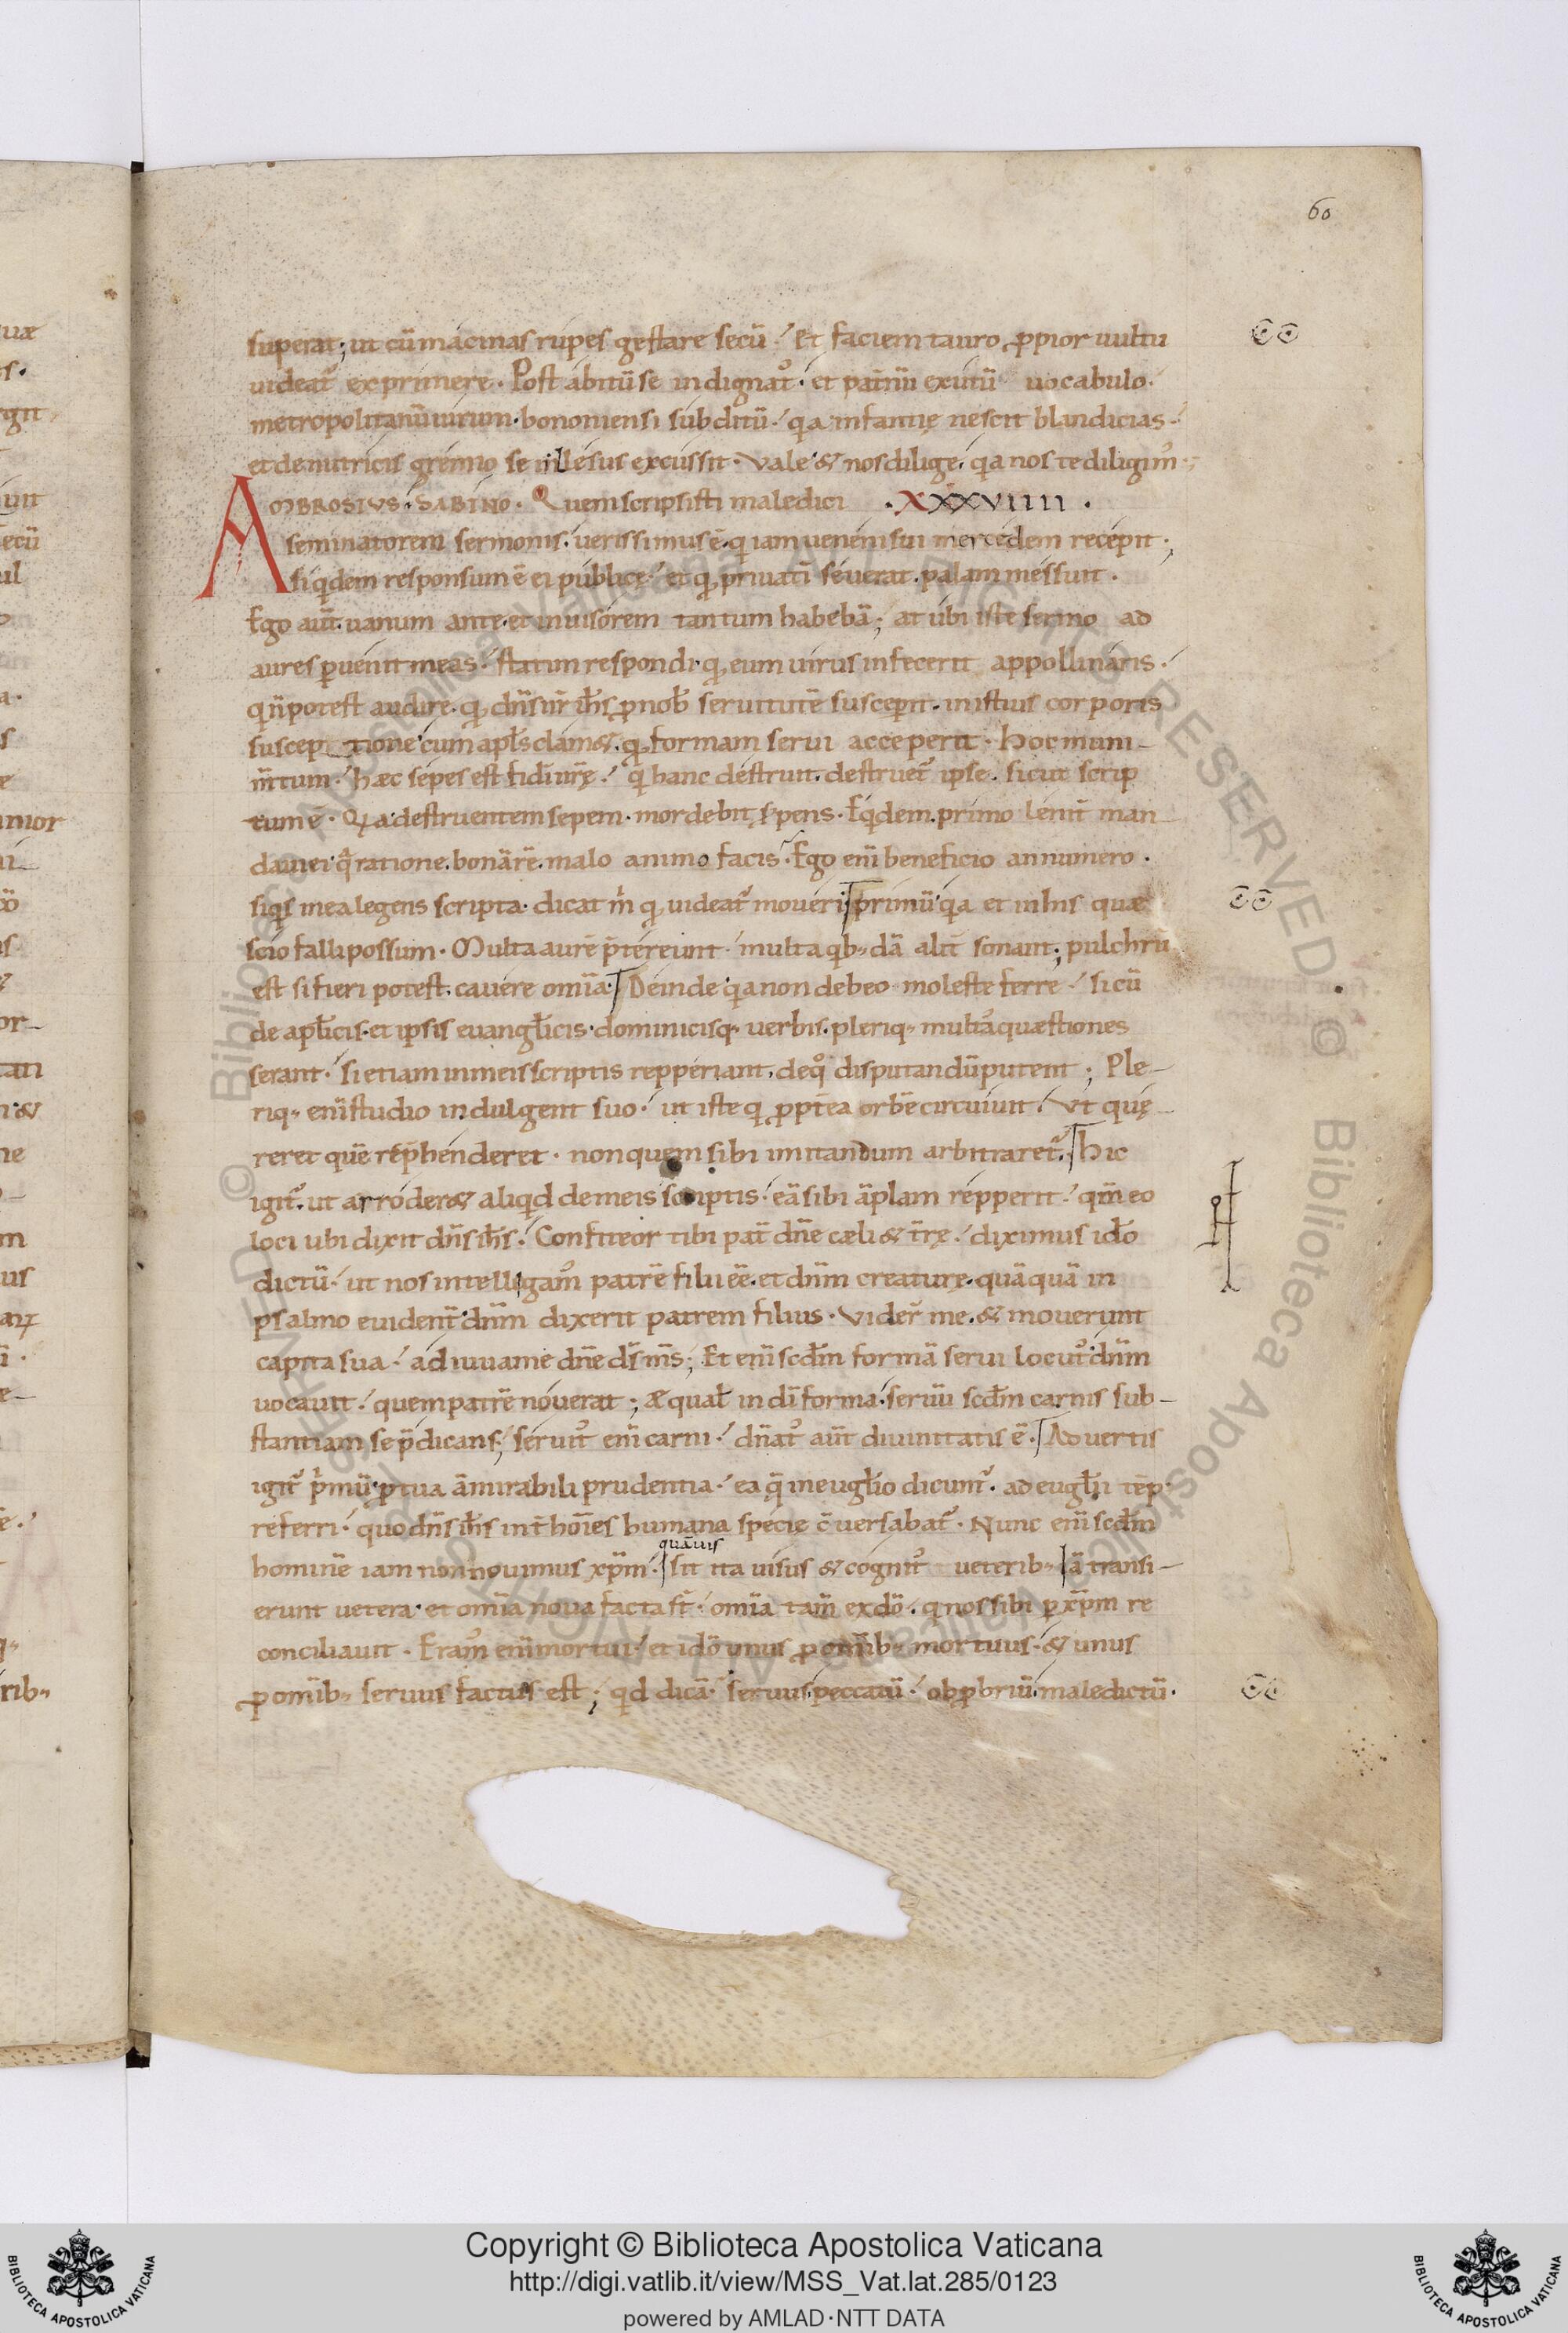 60
superat; ut cū macinas rupes gestare secū· Et faciem tauro ꝓpior uultu
uideat᷑ exprimere· Post abitū se indignat᷑· et patriū exutū uocabulo·
metropolitanū uirum· bononiensi subditū· qa infantię nescit blandicias·
et de nutricis gremio se illesus excussit· Vale & nos dilige, qa nos te diligim᷒·
AMBROSIUS· SABINO· Quem scripsisti maledici ·XXXVIIII·
seminatorem sermonis, uerissimus ē· qi iam ueneni sui mercedem recepit·
siqdem responsum ē ei publicę· et qꝫ priuati seuerat· palam messuit·
Ego aut̄ uanum ante, et inuisorem tantum habebā; at ubi iste sermo ad
aures ꝑuenit meas· statim respondi· qꝫ eum uirus infecerit appollinaris·
qi n̄ potest audire, qꝫ dn̄s nr̄ ih̄s ꝓ nob̄ seruitutē suscepit· in istius corporis
susceptione· cum apl̄s clam&· qꝫ formam serui acceperit· Hoc muni-
m̄tum· hæc sepes est fidi nr̄ę· qi hanc destruit· destruet᷑ ipse· sicut scrip
tum ē· Qa destruentem sepem· mordebit serpens· Eqdem primo lenit̄ man
daui ei· qa ratione bonā rē malo animo facis· Ego eni beneficio annumero·
siqs mea legens scripta· dicat m̄ qꝫ uideat᷑ moueri primū· qa et in his quæ
scio falli possum· Multa aurē p̄tereunt· multa qb dā alit̄ sonant; pulchrū
est si fieri potest, cauere omīa· Deinde· qa non debeo moleste ferre· si cū
de apl̄icis· et ipsis euangl̄icis· dominicisq· uerbis, pleriq· multa quæstiones
serant· si etiam in meis scriptis repperiant, de qo disputandū putent; Ple-
riq· eni studio indulgent suo· ut iste qi ꝓpt̄ea orbē circuiuit· Ut quę
reret quē reph̄enderet· non quem sibi imitandum arbitraret᷑· Hic
igit᷑· ut arroder& aliqd de meis scriptis· eā sibi āplam repperit· qm̄ eo
loci ubi dixit dn̄s ih̄s· Confiteor tibi pat̄ dn̄e cæli & t̄rę· diximus id̄o
dictū· ut nos intelligam᷒ patrē filii eē· et dn̄m creaturę· quāquā in
psalmo euident̄ dn̄m dixerit patrem filius· Vider̄ me, & mouerunt
capita sua· adiuua me dn̄e ds̄ ms̄; Et eni scdm̄ formā serui locut᷒ dn̄m
uocauit· quem patrē nouerat; æqual̄ in di forma· seruū scdm̄ carnis sub-
stantiam se p̄dicans; seruit᷒ eni carni· dn̄at᷒ aut̄ diuinitatis ē· Aduertis
igit᷑ p̄mū· ꝓ tua āmirabili prudentia· ea q̄ in eugl̄io dicunt᷑· ad eugl̄ii tēp·
referri· quo dn̄s ih̄s int̄ hoīes humana specie c̄uersabat᷑· Nunc eni scdm̄
quāuis
hominē iam non nouimus xp̄m· sit ita uisus & cognit᷒ ueterib· ā transi-
erunt uetera· et omīa noua facta st̄· omīa tam̄ ex dō· qi nos sibi ꝑ xp̄m re
conciliauit· Eram᷒ eni mortui· et idō unus ꝓ omib· mortuus· & unus
ꝓ omib· seruus factus est; qd dicā· seruus, peccatū· obꝓbriū, maledictū·
Copyright © Biblioteca Apostolica Vaticana
http://digi.vatlib.it/view/MSS_Vat.lat.285/0123
powered by AMLAD·NTT DATA
BIBLIOTECA APOSTOLICA VATICANA
BIBLIOTECA APOSTOLICA VATICANA